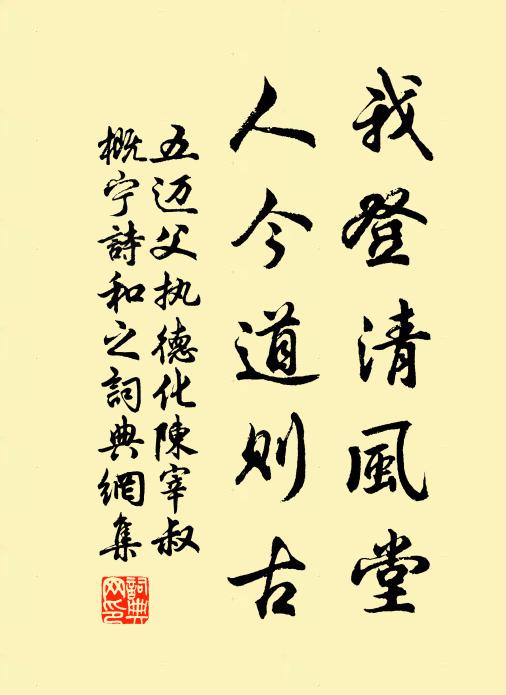 我登清風堂
人今道则古
五迈父执德化陳宰叔
概宁詩和之詞典網集
詞典网印